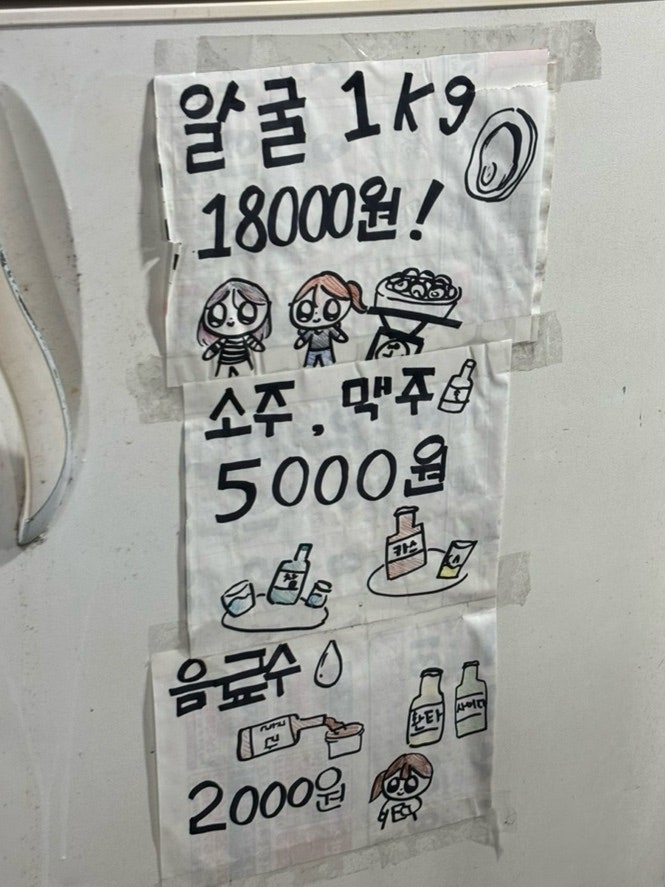 알굴 1kg
18000원!
소주, 맥주
5000원
참
카스
음료수
환타
사이다
2000원